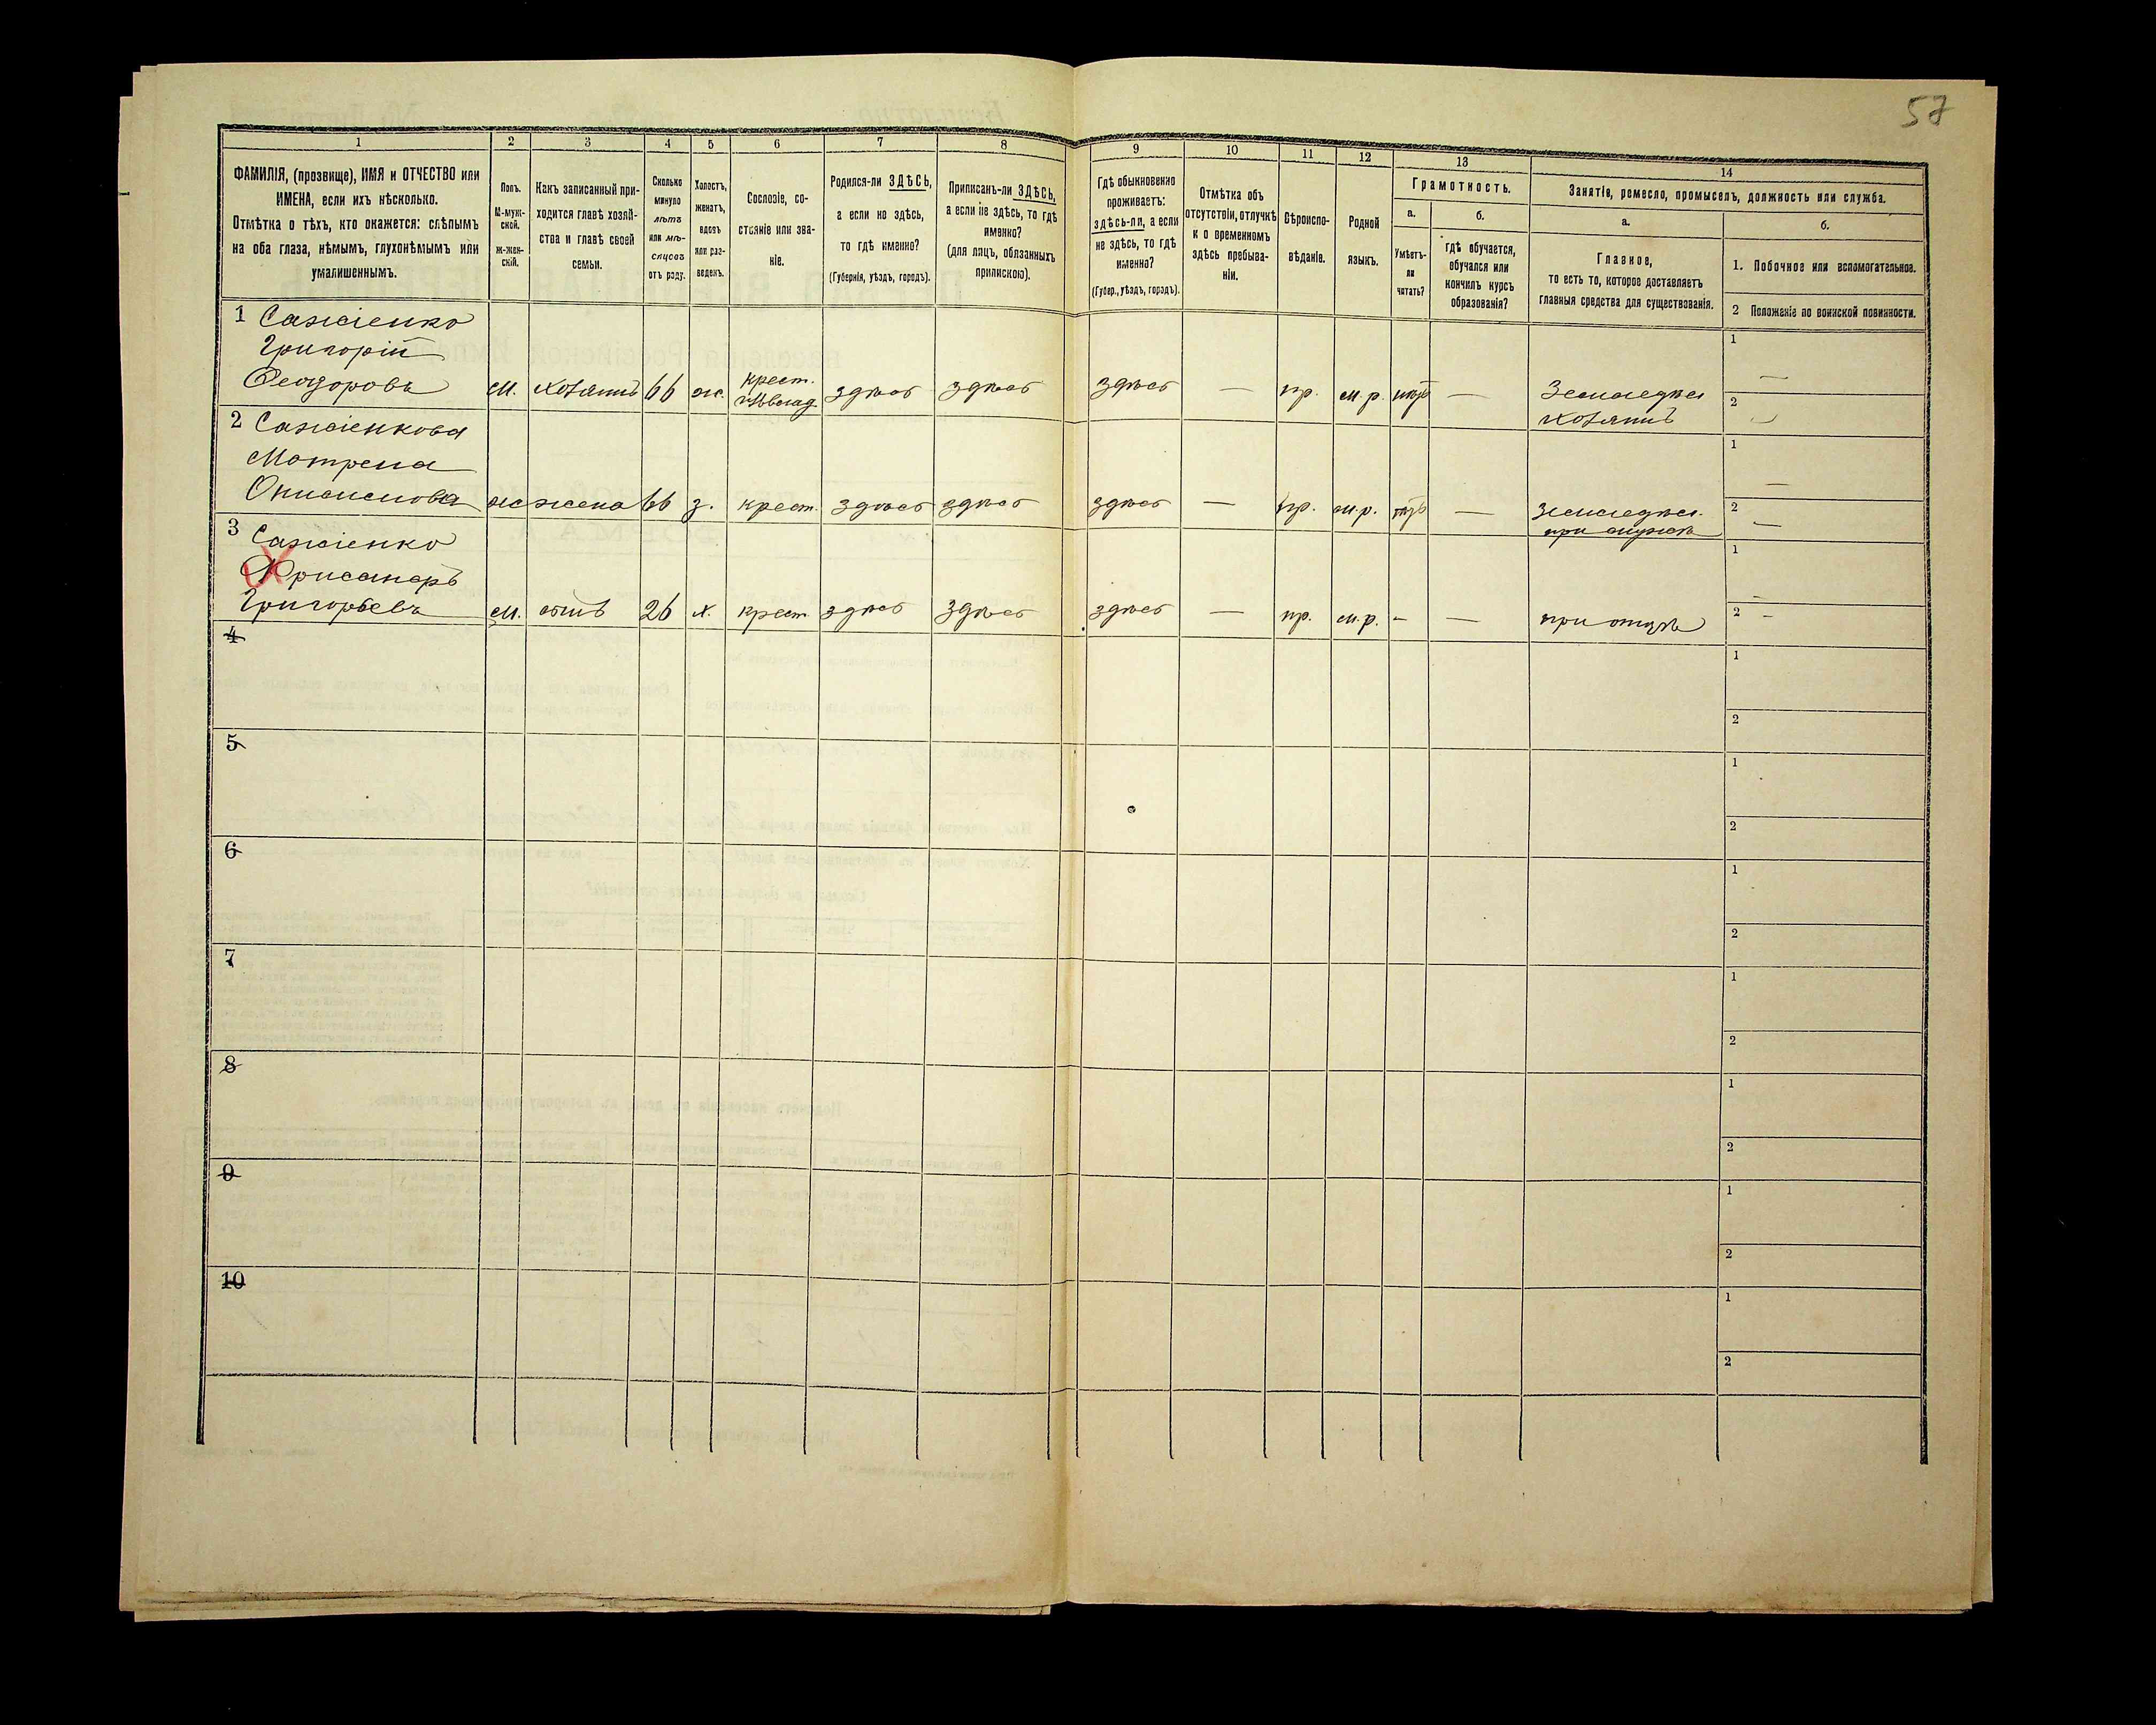 57
1 2 3 4 5 6 7 8 9 10 11 12 13 14
ФАМИЛІЯ, (прозвище), ИМЯ и ОТЧЕСТВО или
ИМЕНА, если ихъ нѣсколько.
Отмѣтка о тѣхъ, кто окажется: слѣпымъ
на оба глаза, нѣмымъ, глухонѣмымъ или
умалишеннымъ.
Полъ.
М-муж-
ской.
Ж-жен-
скій.
Какъ записанный при-
ходится главѣ хозяй-
ства и главѣ своей
семьи.
Сколько
минуло
лѣтъ
или мѣ-
сяцевъ
отъ роду.
Холостъ,
женатъ,
вдовъ
или раз-
веденъ.
Сословіе, со-
стояніе или зва-
ніе.
Родился-ли ЗДѢСЬ,
а если не здѣсь,
то гдѣ именно?
(Губернія, уѣздъ, городъ).
Приписанъ-ли ЗДѢСЬ,
а если не здѣсь, то гдѣ
именно?
(для лицъ, обязанныхъ
припискою).
Гдѣ обыкновенно
проживаетъ:
здѣсь-ли, а если
не здѣсь, то гдѣ
именно?
(Губер., уѣздъ, городъ).
Отмѣтка объ
отсутствіи, отлучкѣ
и о временномъ
здѣсь пребыва-
ніи.
Вѣроиспо-
вѣданіе.
Родной
языкъ.
Грамотность.
а.
Умѣетъ-
ли
читать?
б.
гдѣ обучается,
обучался или
кончилъ курсъ
образованія?
Занятіе, ремесло, промыселъ, должность или служба.
а.
Главное,
то есть то, которое доставляетъ
главныя средства для существованія.
б.
1. Побочное или вспомогательное.
2 Положеніе по воинской повинности.
1 Сажіенко
Григорій
Феодоровъ м. хозяинъ 66 ж. крест. здѣсь здѣсь здѣсь — пр. м.р. нѣтъ — Земледѣл
хозяинъ
1 —
2 —
2 Сажіенкова
Матрена
Онисимова ж жена 66 з. крест. здѣсь здѣсь здѣсь — пр. м.р. нѣтъ — земледѣл.
при мужѣ
1 —
2 —
3 Сажіенко
Хрисанфъ
Григорьевъ м. сынъ 26 х. крест. здѣсь здѣсь здѣсь — пр. м.р. — — при отцѣ
1
2 —
4
1
2
5
1
2
6
1
2
7
1
2
8
1
2
9
1
2
10
1
2